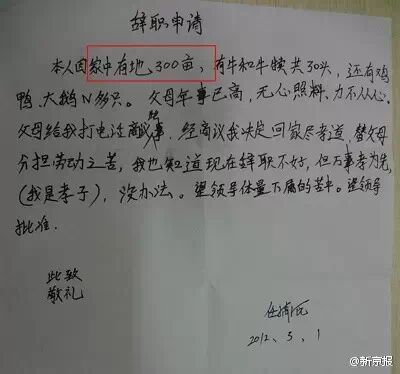 辞职申请
本人因家中有地300亩、有牛和牛犊共30头，还有鸡
鸭、大鹅N多只。父母年事已高，无心照料、力不从心。
父母给我打电话商议事，经商议我决定回家尽孝道，替父母
分担劳动之苦，我也知道现在辞职不好，但百事孝为先，
(我是孝子)，没办法。望领导体量下属的苦中。望领导
批准.
此致
敬礼
2012、5、1
@新京报